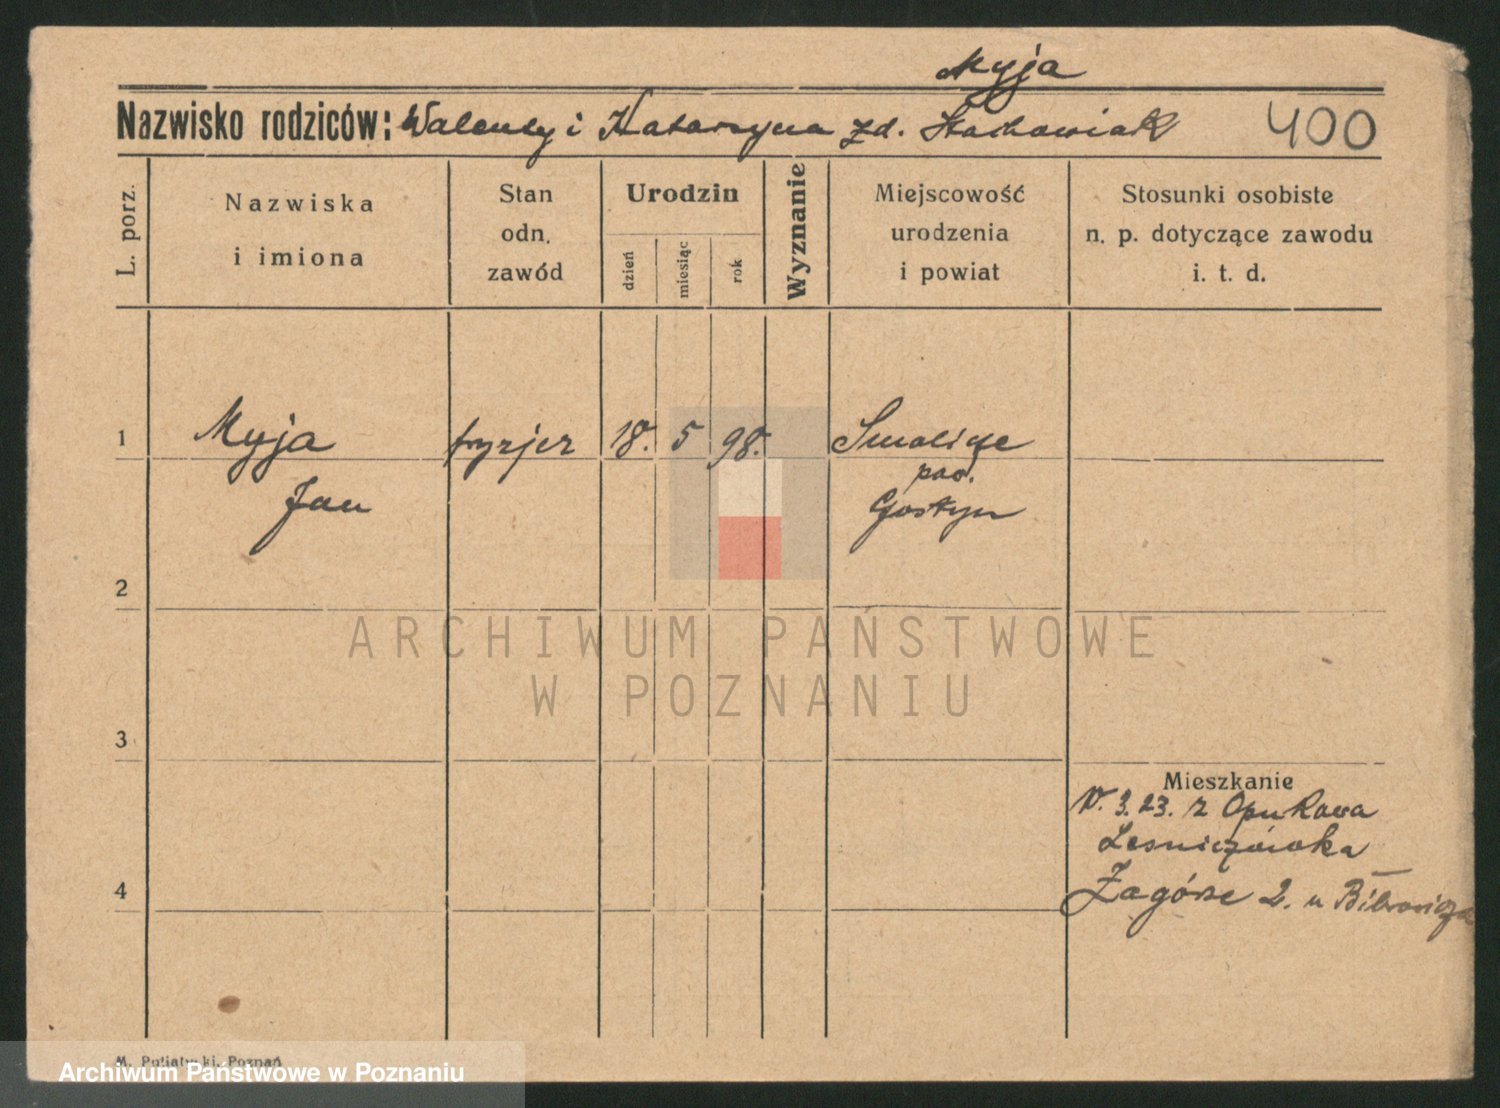 Myja
Nazwisko rodziców: Walenty i Katarzyna zd. Stachowiak 400
L. porz.
Nazwiska
i imiona
Stan
odn.
zawód
Urodzin
dzień
miesiąc
rok
Wyznanie
Miejscowość
urodzenia
i powiat
Stosunki osobiste
n. p. dotyczące zawodu
i. t. d.
1 Myja fryzjer 18. 5 98. Smolice
pow.
Jan Gostyń
2
ARCHIWUM PAŃSTWOWE
W POZNANIU
3
Mieszkanie
3. 23. z Opukowa
Leśniczówka
4
Zagórze 2. u
M. Putiatycki, Poznań
Archiwum Państwowe w Poznaniu